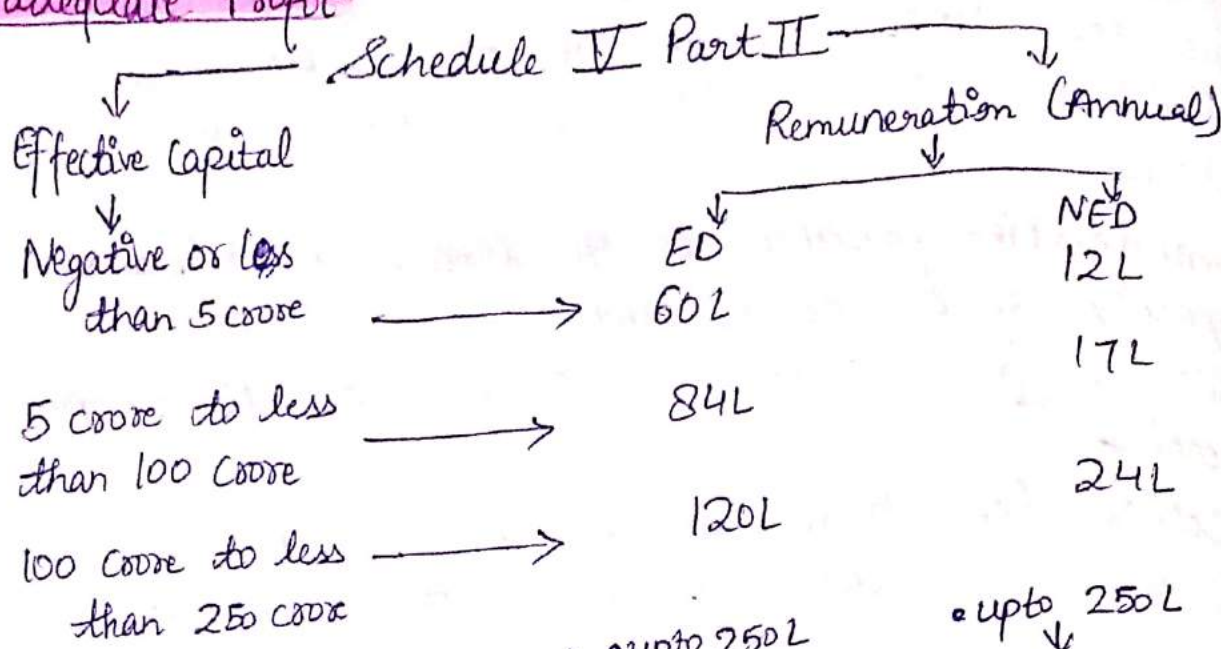 adequate Profit
Schedule V Part II
Effective Capital
Remuneration (Annual)
ED
NED
Negative or less
than 5 crore
60L
12L
5 crore to less
than 100 crore
84L
17L
100 crore to less
than 250 crore
120L
24L
upto 250L
• upto 250L